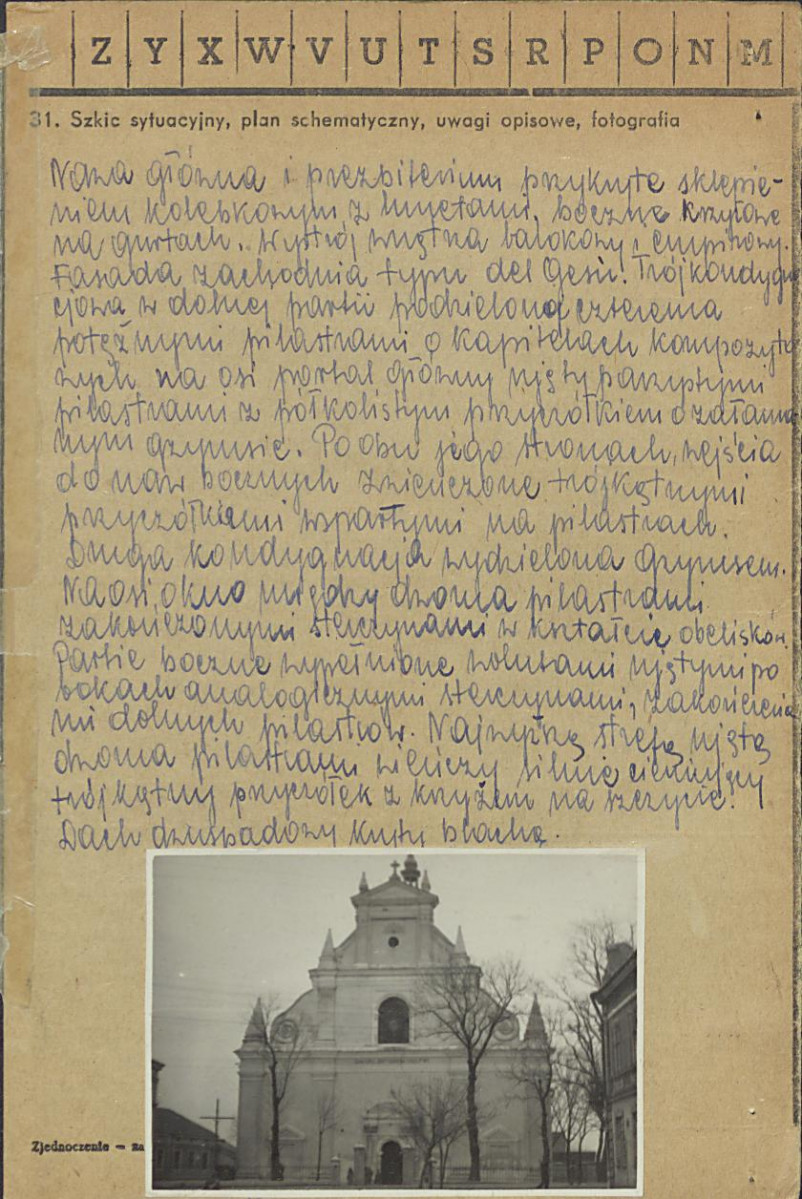 Z Y X W V U T S R P O N M
31. Szkic sytuacyjny, plan schematyczny, uwagi opisowe, fotografia
Nawa główna i prezbiterium przykryte sklepie-
niem kolebkowym z lunetami, boczne krzyżowe
na gurtach. Wystrój wnętrza barokowy i empirowy.
Fasada zachodnia typu del Gesù. Trójkondygna
cjowa w dolnej partii podzielona czterema
potężnymi pilastrami o kapitelach kompozyto
wych na osi portal główny ujęty parzystymi
pilastrami z półkolistym przyczółkiem o załama
nym gzymsie. Po obu jego stronach, wejścia
do naw bocznych zwieńczone trójkątnymi
przyczółkami wspartymi na pilastrach.
Druga kondygnacja wydzielona gzymsem.
Na osi okno między dwoma pilastrami
zakończonymi sterczynami w kształcie obelisków.
Partie boczne wypełnione wolutami ujętymi po
bokach analogicznymi sterczynami, zakończenia
mi dolnych pilastrów. Najwyższą strefę ujętą
dwoma pilastrami wieńczy silnie cieniujący
trójkątny przyczółek z krzyżem na szczycie.
Dach dwuspadowy kryty blachą.
Zjednoczenie — za